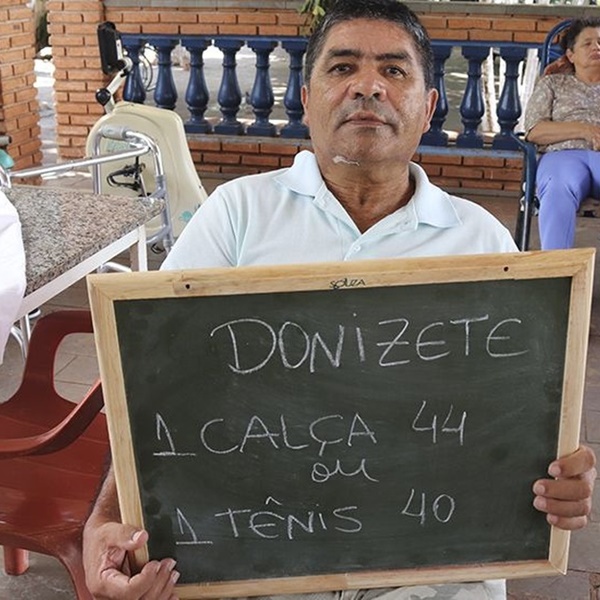 SOUZA
DONIZETE
1 CALÇA 44
ou
1 TÊNIS 40